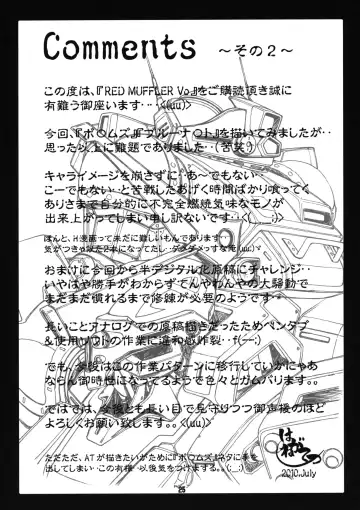 Comments
～その２～
この度は、『RED MUFFLER Vo.』をご購読頂き誠に
有難う御座います・・・<(uu)>
今回、『ボ○ムズ』『ブルーナ○ト』を描いてみましたが・・
思った以上に難題でありました・・(苦笑)
キャライメージを崩さずに・・あ～でもない・・
こーでもない・・と苦戦したあげく時間ばかり喰ってく
ありさまで自分的に不完全燃焼気味なモノが
出来上がってしまい申し訳ないです・・<(__;)>
ほんと、H漫画って未だに難しいもんであります・・
おまけに今回から半デジタル化原稿にチャレンジ・・
いやはや勝手がわからずてんやわんやの大騒動で
まだまだ慣れるまで修練が必要のようです・・
長いことアナログでの原稿描きだったためペンタブ
&使用ソフトの作業に違和感炸裂・・f(--;)
でも、今後はこの作業パターンに移行していかにゃあ
ならん御時世になってるようで色々とガムバリます。。
ではでは、今後とも長い目で見守りつつ御声援のほど
よろしくお願い致します。。<(uu)>
ただただ、ATが描きたいがために『ボ○ムズ』ネタに手を
出してしまい・・この有様・・以後気をつけまする。。(;__;)
2010.July
25